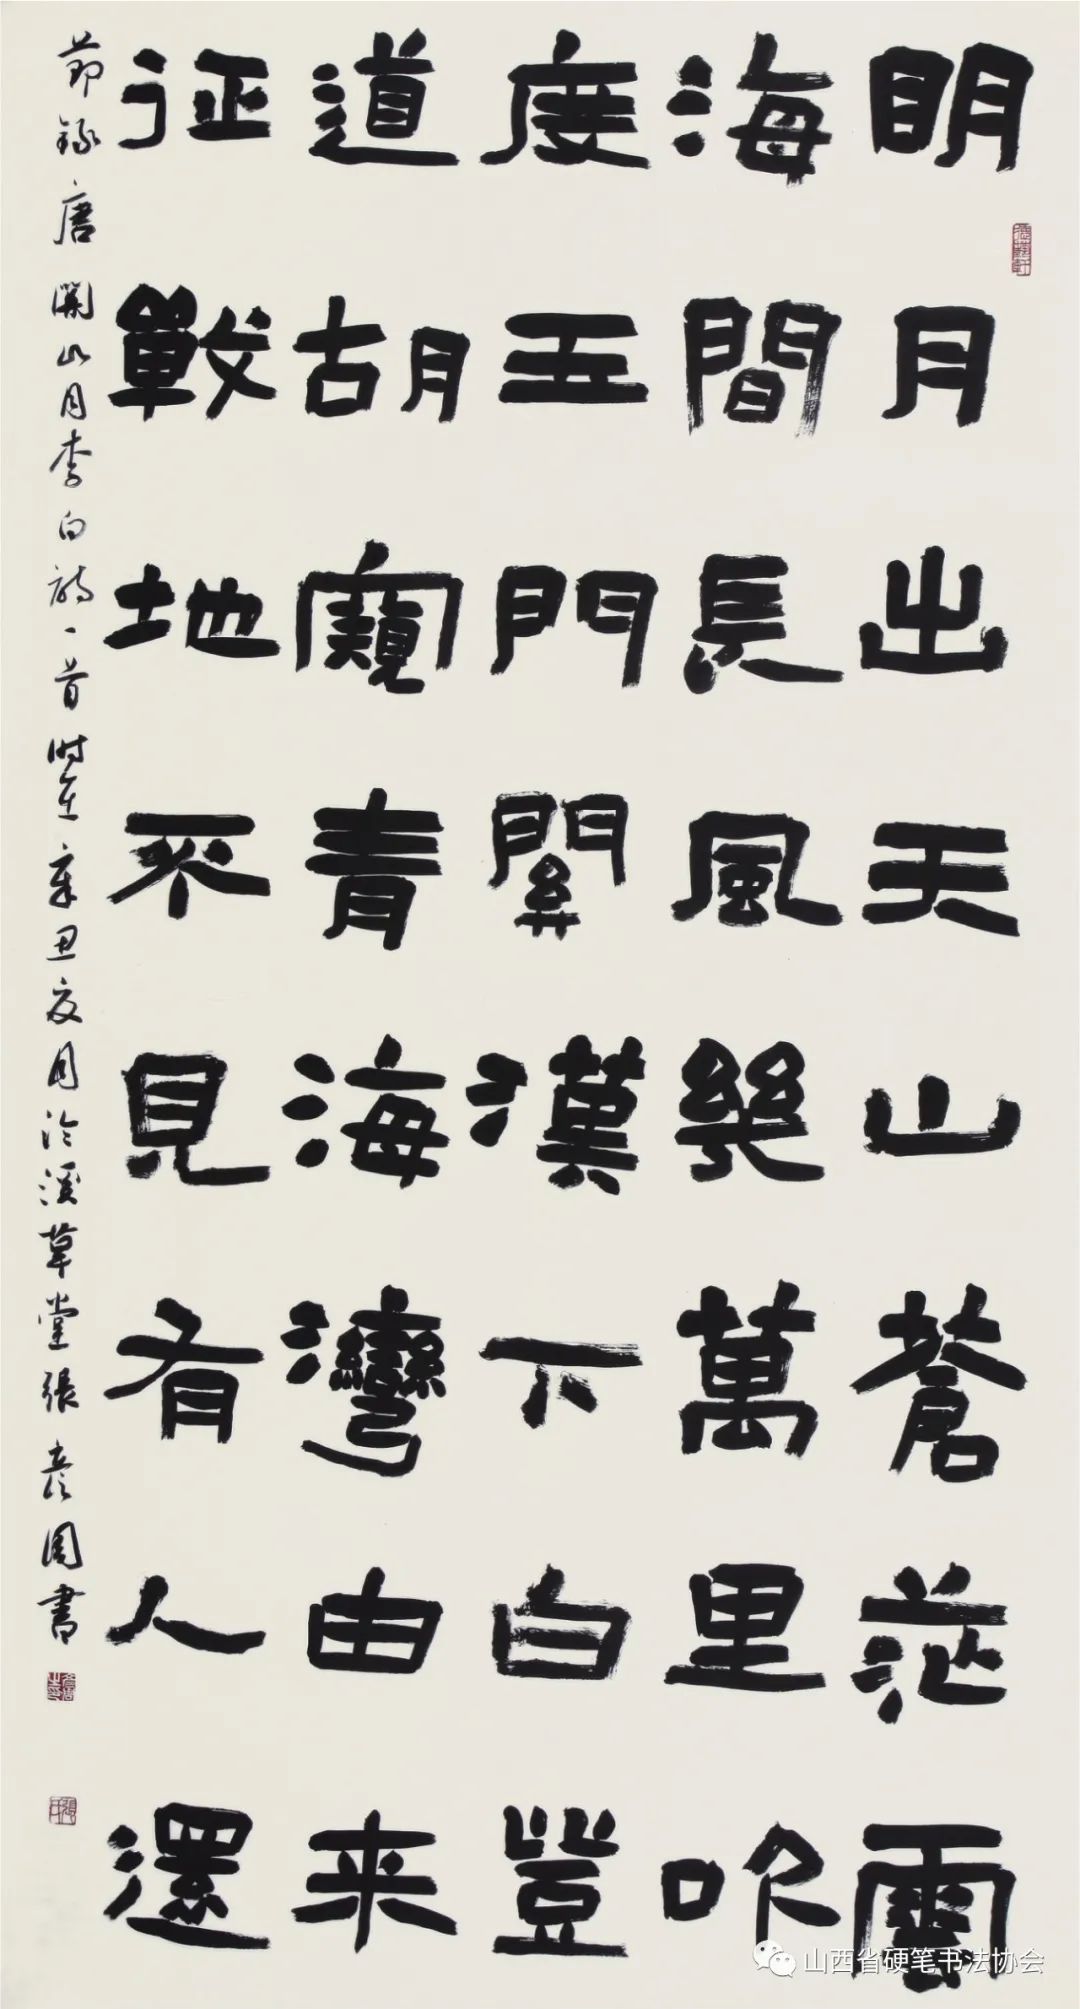 明月出天山蒼茫雲
海間長風幾萬里吹
度玉門關漢下白登
道胡窺青海灣由来
征戰地不見有人還
節錄唐關山月李白詩一首時在辛丑夏月泠溪草堂張彥周書
山西省硬笔书法协会